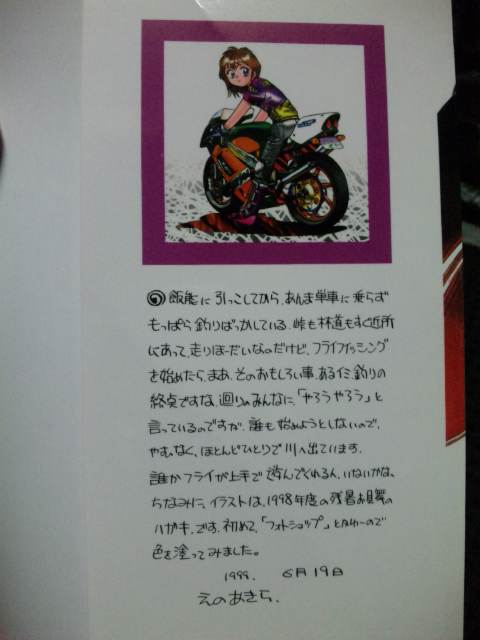 飯能に引っこしてから、あんま単車に乗らず
もっぱら釣りばっかしている。峠も林道もすぐ近所
にあって、走りほーだいなのだけど、フライフィッシング
を始めたら、まあ、そのおもしろい事、あるイミ釣りの
終点ですな。廻りのみんなに、「やろうやろう」と
言っているのですが、誰も始めようとしないので、
やむなく、ほとんどひとりで川へ出ています。
誰かフライが上手で遊んでくれる人、いないかな。
ちなみに、イラストは、1998年度の残暑お見舞の
ハガキ、です。初めて、「フォトショップ」とゆーので
色を塗ってみました。
1999. 6月19日
えのあきら.